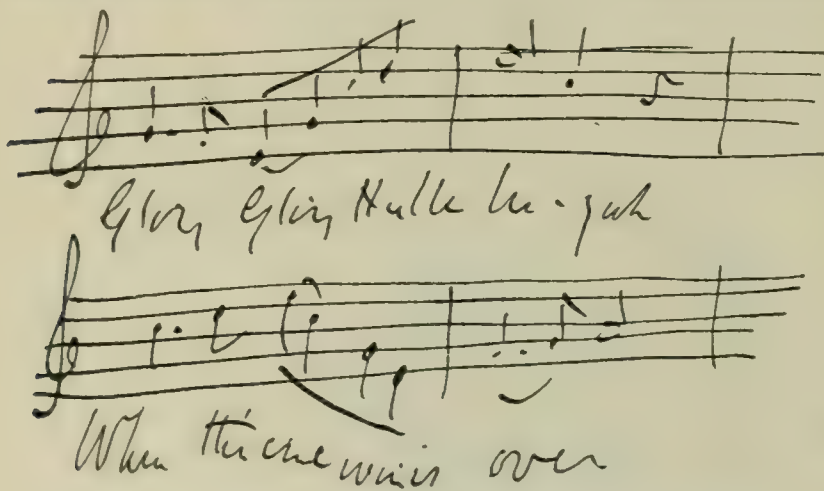 Glory Glory Halle lu - jah
When this cruel war is over